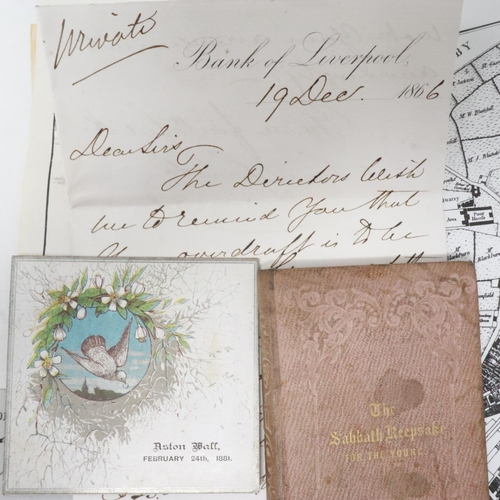 Private
Bank of Liverpool,
19 Dec. 1866
Dear Sirs
The Directors Wish
me to remind you that
overdraft is to be
Aston Hall,
FEBRUARY 24th, 1881.
The
Sabbath Keepsake
FOR THE YOUNG.
BY
M. W. Blundell
M. J. Blundell
Quarry
Area
Poor
House